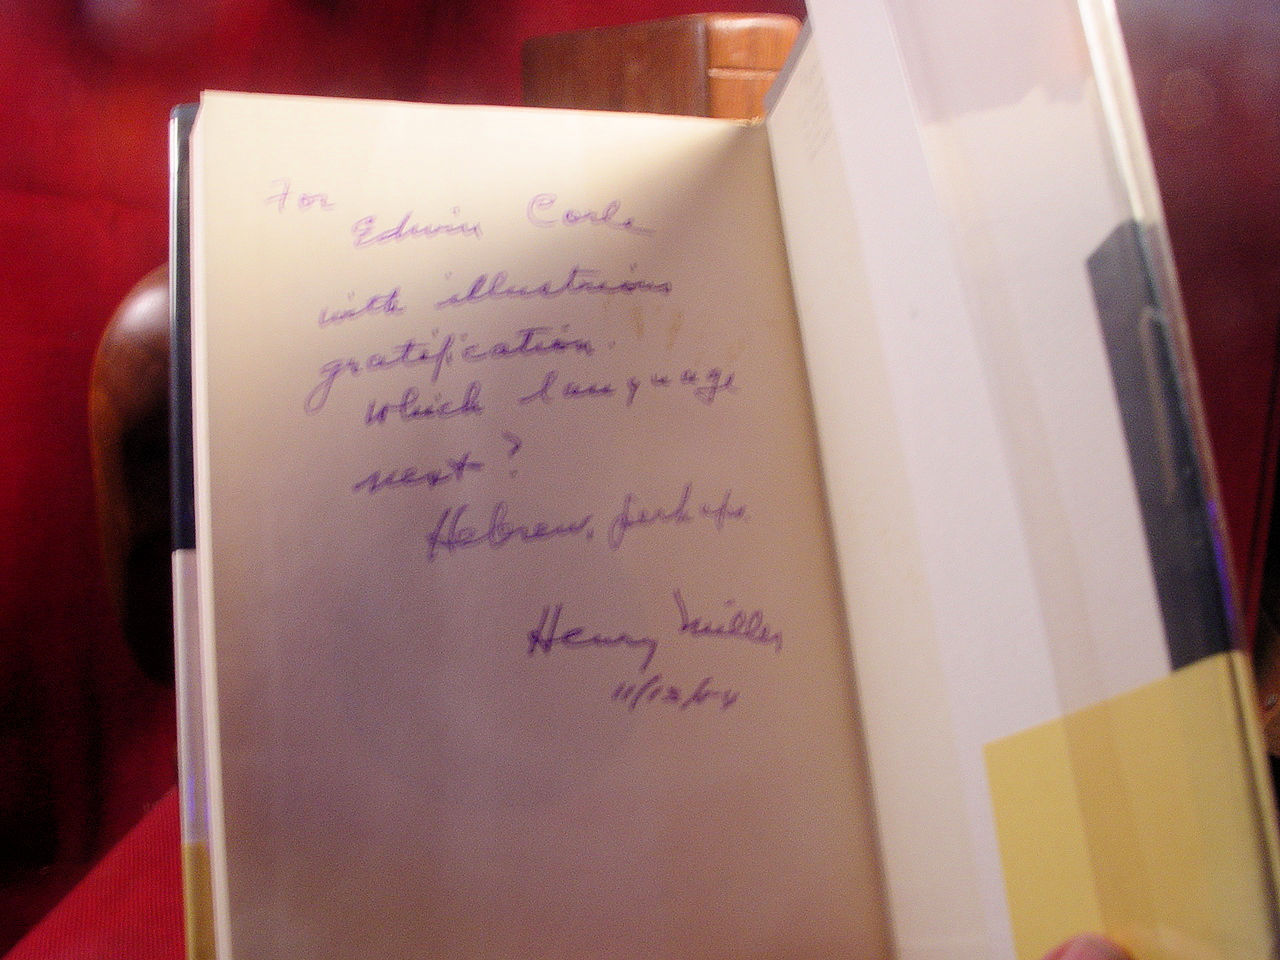 For
Edwin Corle
with illustrious
gratification.
Which language
next?
Hebrew, perhaps.
Henry Miller
11/12/54